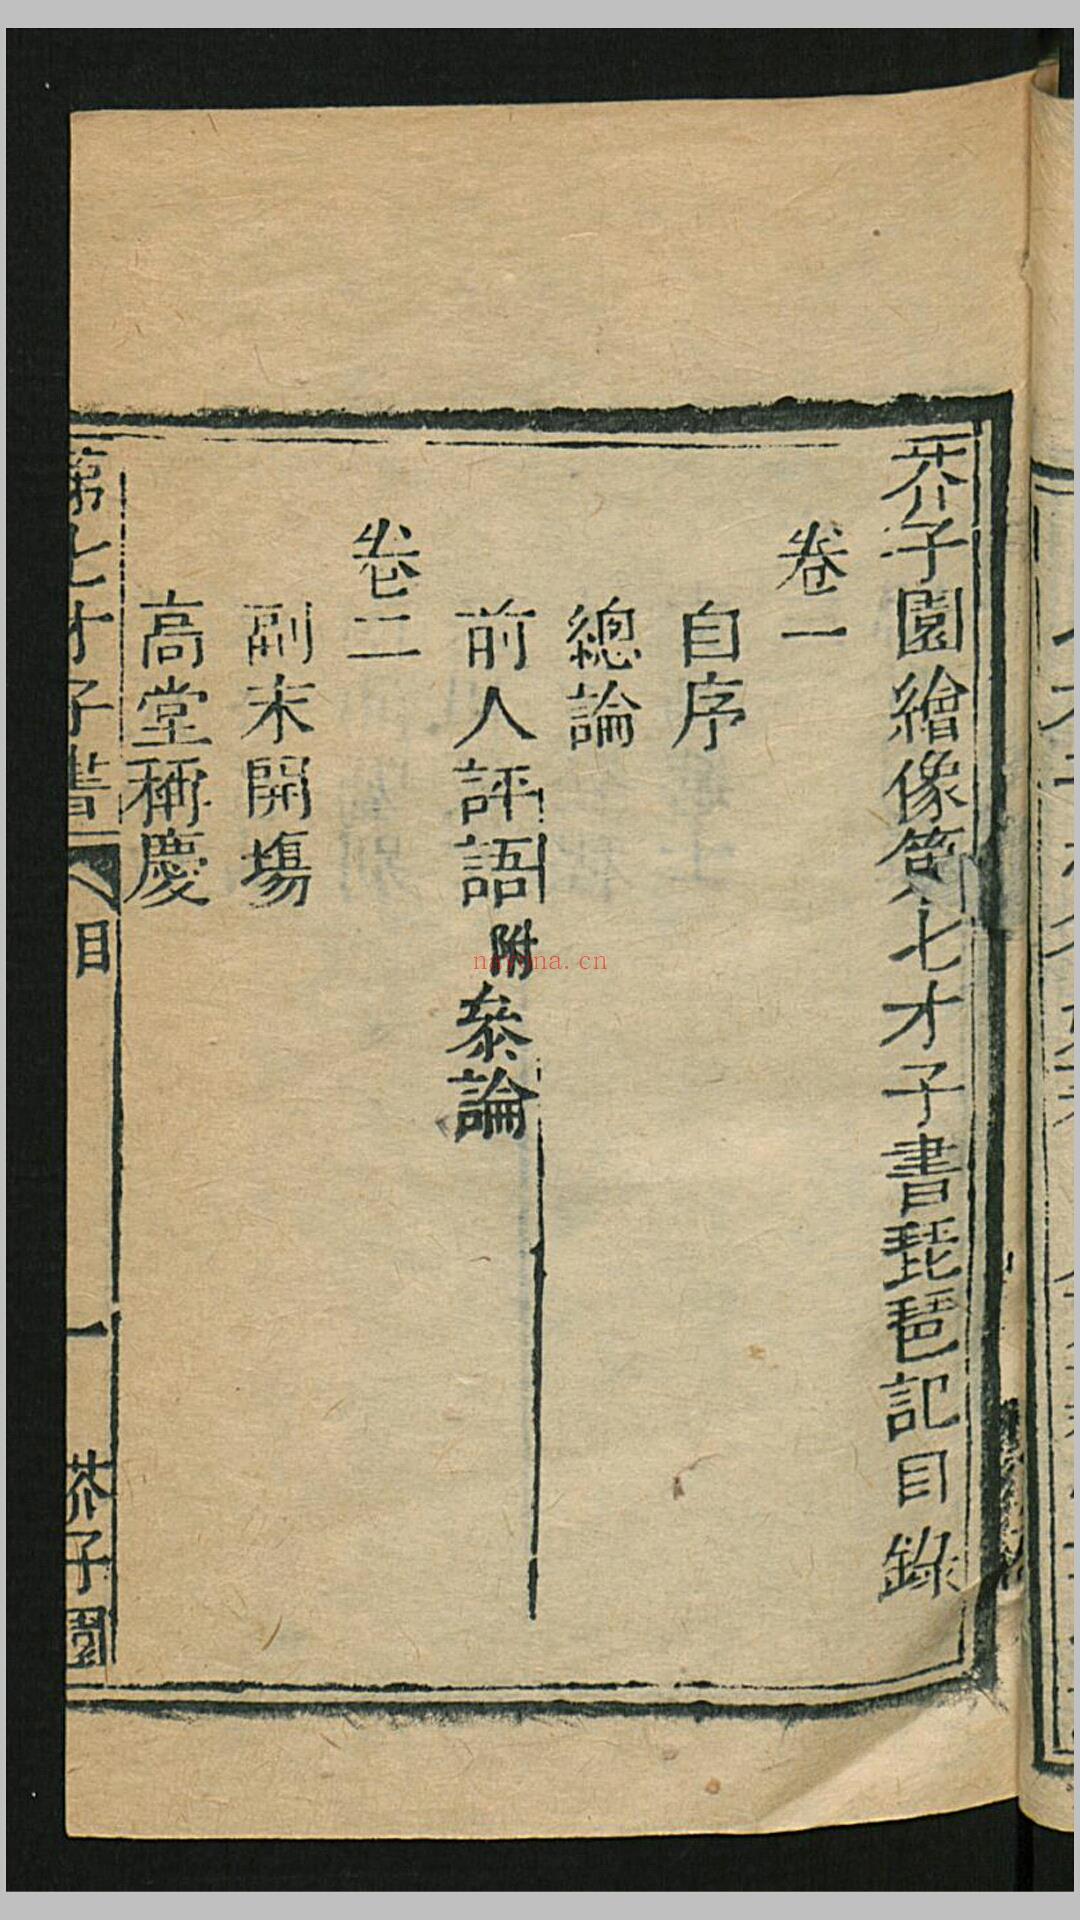 芥子園繪像第七才子書琵琶記目錄
卷一
自序
總論
前人評語附叅論
卷二
副末開塲
高堂稱慶
第七才子書
目
一
芥子園
nayona.cn